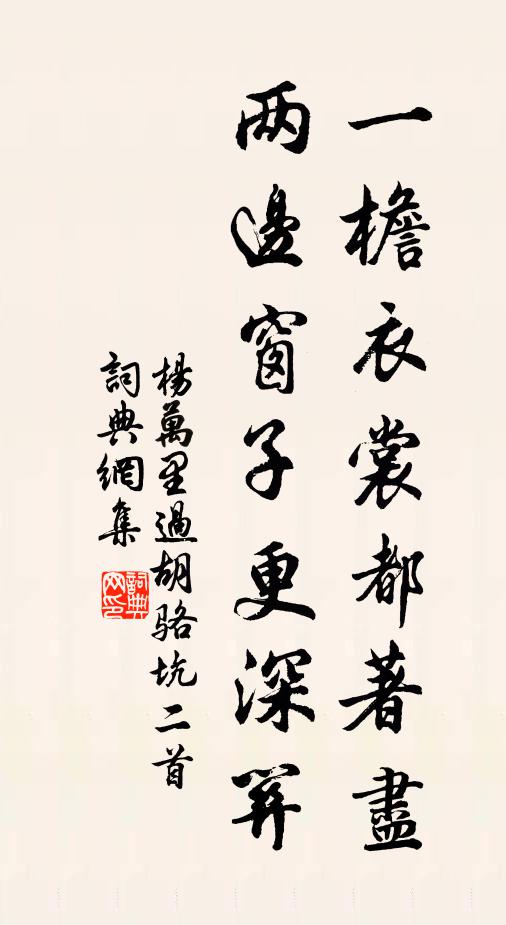 一檐衣裳都著盡
两邊窗子更深筭
楊萬里過胡駱坑二首
詞典網集
詞典
网印